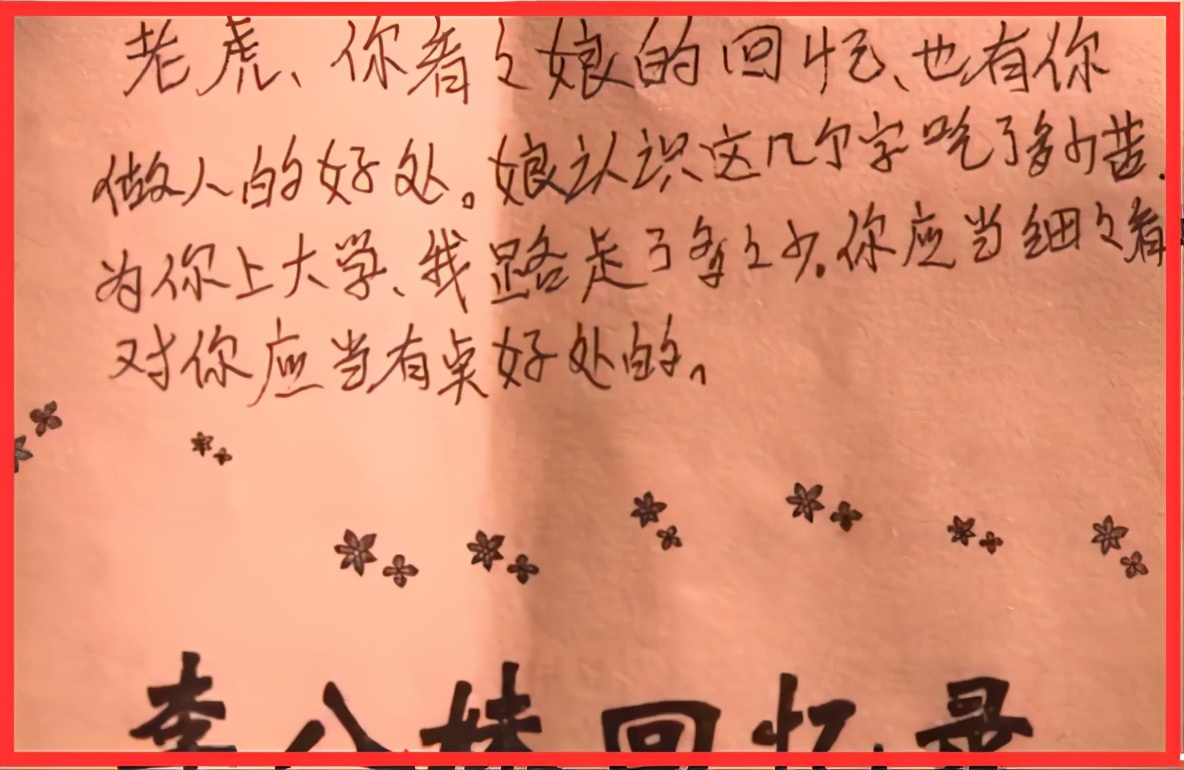 老虎、你看々娘的回忆、也有你
做人的好处。娘认识这几个字吃了多少苦.
为你上大学、我路走了多々少.你应当细々看
对你应当有点好处的。
李八妹回忆录